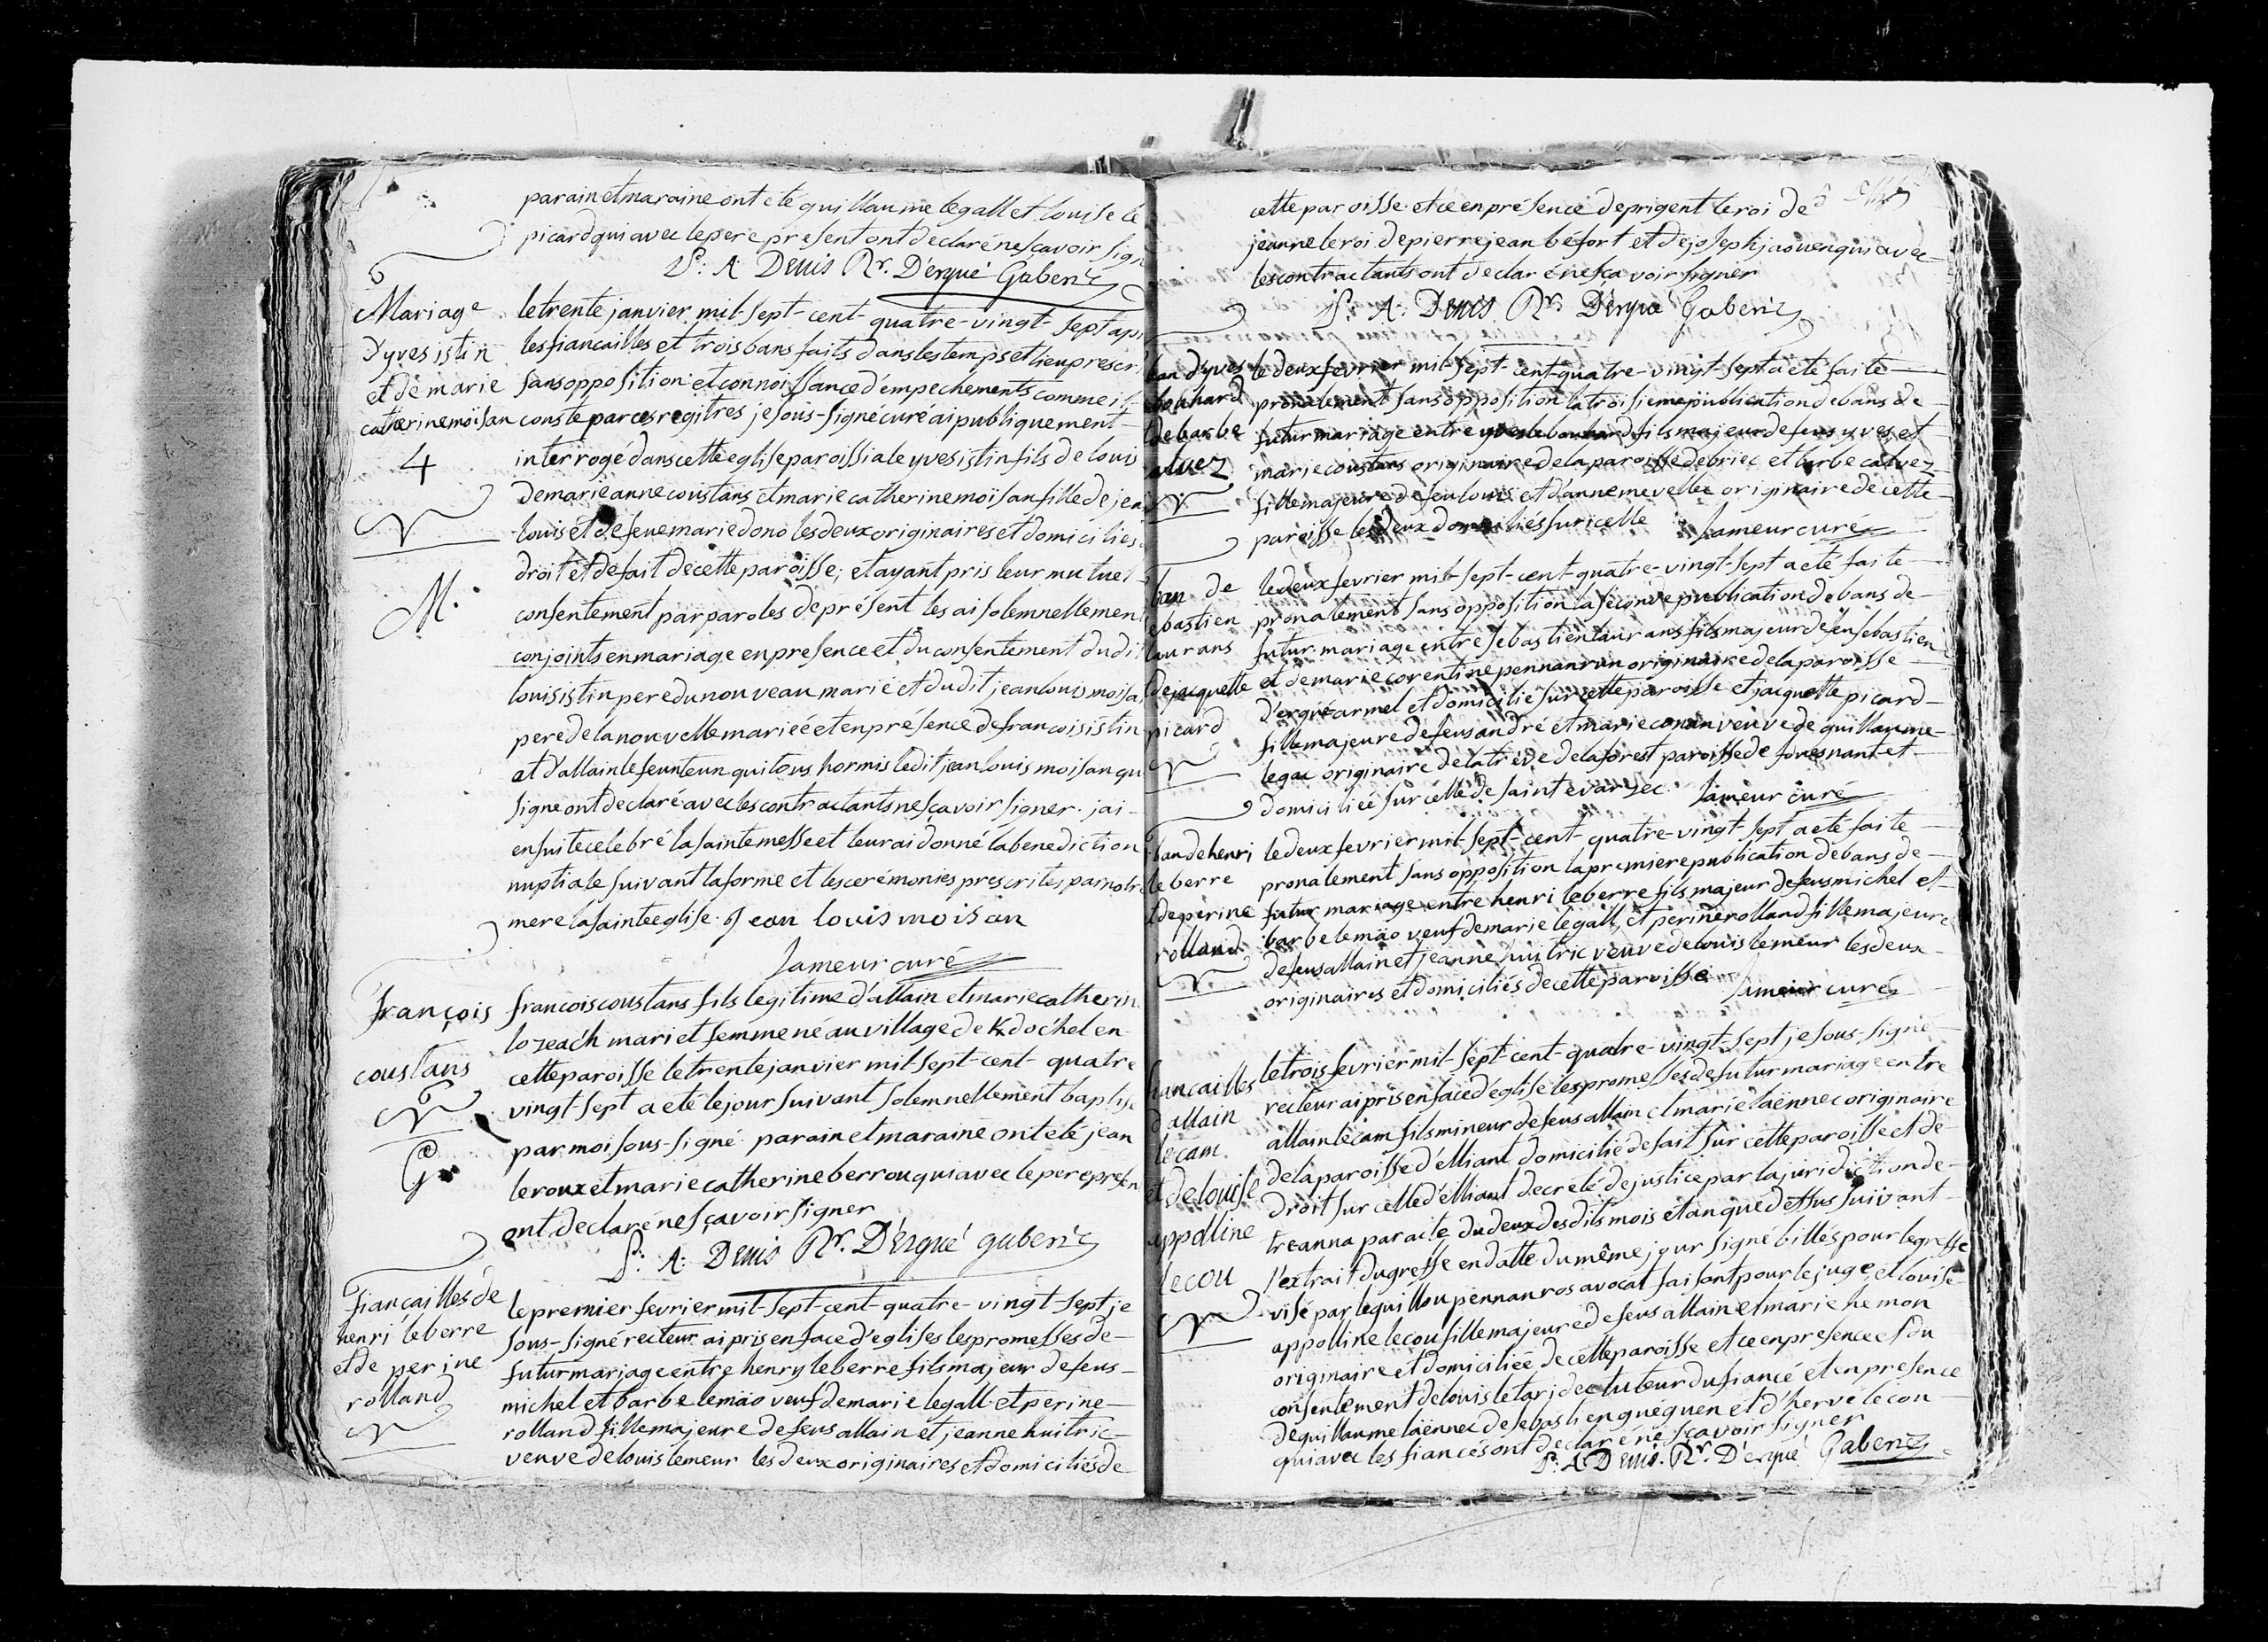 parain et maraine ont eté guillaume le gall et louise le
picard qui avec le pere present ont declaré ne scavoir sign
P: A: Denis Rr. D'ergué Gaberic
Mariage
d'yves istin
et de marie
catherine moisan
4
M.
le trente janvier mil-sept-cent-quatre-vingt-sept apr
les fiancailles et trois bans faits dans les temps et lieu prescri
sans opposition et connoissance d'empechements comme il
conste par ces regitres je sous-signé curé ai publiquement
interrogé dans cette eglise paroissiale yves istin fils de louis
de marie anne coustans et marie catherine moisan fille de jea
louis et de feue marie dono les deux originaires et domiciliés
droit et de fait de cette paroisse; et ayant pris leur mutuel
consentement par paroles de présent les ai solemnellemen
conjoints en mariage en presence et du consentement du di
louis istin pere du nouveau marié et du dit jean louis moisa
pere de la nouvelle mariée et en présence de francois istin
et d'allain le feunteun qui tous hormis le dit jean louis moisan qu
signe ont declaré avec les contractants ne sçavoir signer. j'ai
ensuite celebré la sainte messe et leur ai donné la benediction
nuptiale suivant la forme et les cerémonies prescrites par notr
mere la sainte eglise. Jean louis moisan
Lameur curé
françois
coustans
G
francois coustans fils legitime d'allain et marie catherin
lozeac'h mari et femme né au village de K/doc'hel en
cette paroisse le trente janvier mil-sept-cent-quatre
vingt sept a eté le jour suivant solemnellement baptisé
par moi sous-signé. parain et maraine ont eté jean
le roux et marie catherine berrou qui avec le pere presen
ont declaré ne sçavoir signer
P: A: Denis Rr. D'Ergué gaberic
fiançailles de
henri le berre
et de perine
rolland
le premier fevrier mil-sept-cent-quatre-vingt-sept je
sous-signé recteur ai pris en face d'eglise les promesses de
futur mariage entre henry le berre fils majeur de feus
michel et barbe le mäo veuf de marie le gall et perine
rolland fille majeure de feus allain et jeanne huitric
veuve de louis le meur les deux originaires et domiciliés de
cette paroisse et ce en présence de prigent le roi de
jeanne le roi de pierre jean béfort et de joseph jaouen qui avec
les contractants ont declaré ne sça voir signer
P: A: Denis Rr. D'ergué Gaberic
ban d'yves
bouhard
de barbe
alvez
le deux fevrier mil-sept-cent-quatre-vingt-sept a eté faite
pronalement sans opposition la troisieme publication de bans de
futur mariage entre yves le bouhard fils majeur de feus yves et
marie coustans originaire de la paroisse de briec et barbe calvez
fille majeure de feu louis et d'anne mevellec originaire de cette
paroisse les deux domiciliés sur icelle Lameur curé
ban de
ebastien
laurans
de jacquette
picard
le deux fevrier mil-sept-cent-quatre-vingt-sept a eté faite
pronalement sans opposition la seconde publication de bans de
futur mariage entre sebastien laurans fils majeur de feu sebastien
et de marie corentine pennanrun originaire de la paroisse
d'ergué armel et domicilié sur cette paroisse et jacquette picard
fille majeure de feus andré et marie conan veuve de guillaume
le gac originaire de la trêve de la forest paroisse de fouesnant et
domiciliée sur celle de saint evarzec Lameur curé
ban de henri
le berre
de perine
rolland
le deux fevrier mil-sept-cent-quatre-vingt-sept a eté faite
pronalement sans opposition la premiere publication de bans de
futur mariage entre henri le berre fils majeur de feus michel et
barbe le mäo veuf de marie le gall, et perine rolland fille majeure
de feus allain et jeanne huitric veuve de louis le meur les deux
originaires et domiciliés de cette paroisse Lameur curé
fiancailles
d'allain
le cam
et de louise
appolline
le cou
le trois fevrier mil-sept-cent-quatre-vingt-sept je sous-signé
recteur ai pris en face d'eglise les promesses de futur mariage entre
allain le cam fils mineur de feus allain et marie laënnec originaire
de la paroisse d'elliant domicilié de fait sur cette paroisse et de
droit sur celle d'élliant decrété de justice par la juridiction de
treanna par acte du deux des dits mois et an que dessus suivant
l'extrait du greffe en datte du même jour signé billés pour le greffe
visé par le guillou pennanros avocat faisant pour le juge, et louise
appolline le cou fille majeure de feus allain et marie hemon
originaire et domiciliée de cette paroisse et ce en presence et du
consentement de louis le taridec tuteur du fiancé et en presence
de guillaume laënnec de sebastien guéguen et d'hervé le cou
qui avec les fiancés ont declaré ne sçavoir signer
P: A: Denis. Rr. D'ergué Gaberic